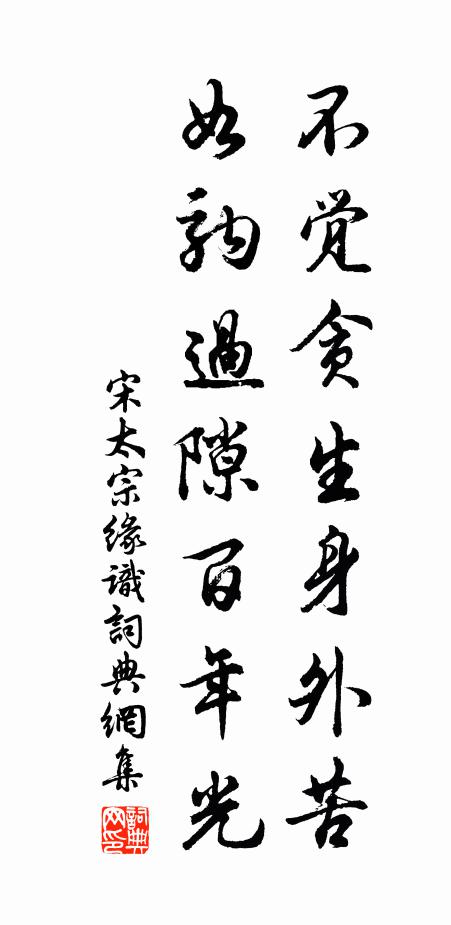 不觉贪生身外苦
如驹過隙百年光
宋太宗缘識詞典網集
詞典网印